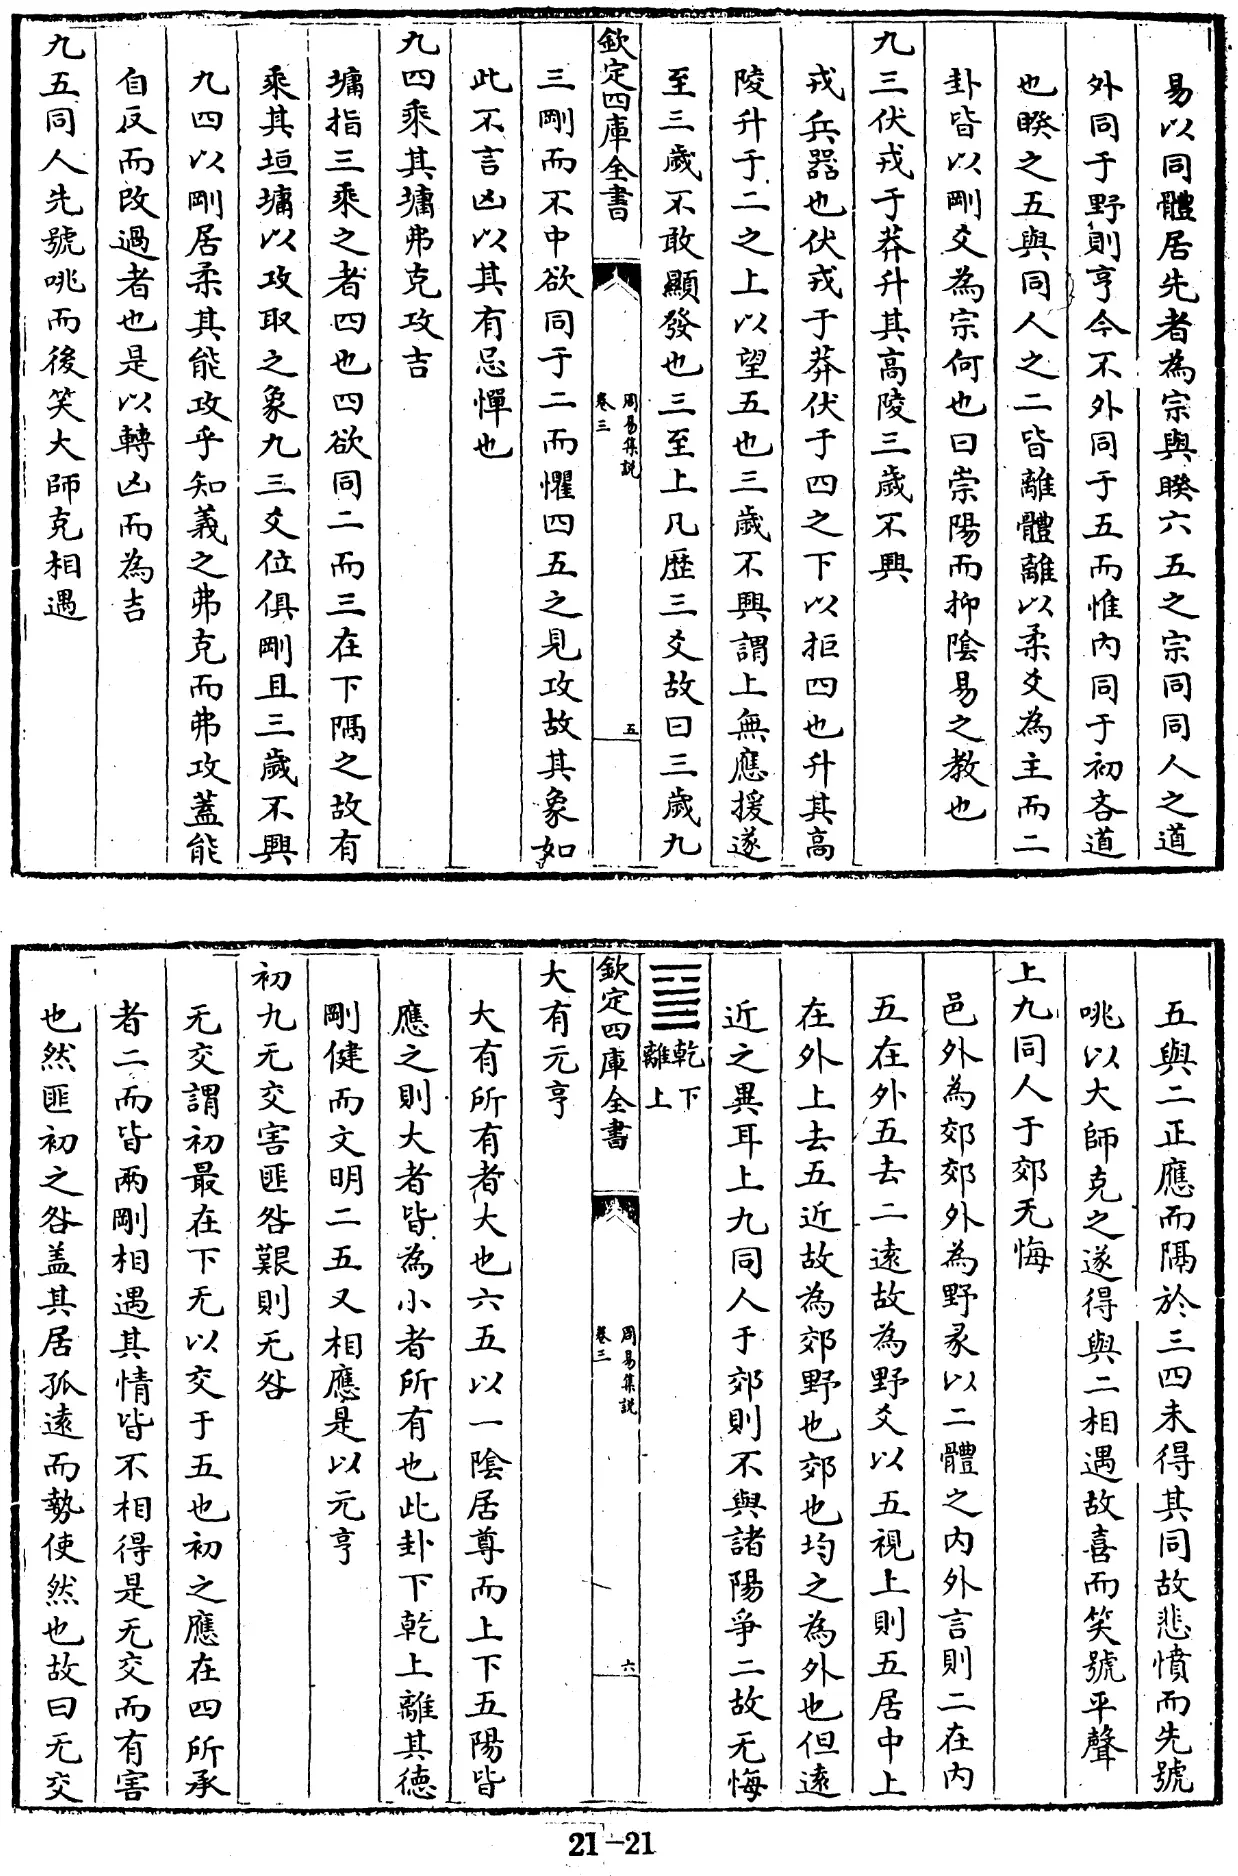 易以同體居先者為宗與睽六五之宗同同人之道
外同于野則亨今不外同于五而惟內同于初吝道
也睽之五與同人之二皆離體離以柔爻為主而二
卦皆以剛爻為宗何也曰崇陽而抑陰易之教也
九三伏戎于莽升其高陵三歲不興
戎兵器也伏戎于莽伏于四之下以拒四也升其高
陵升于二之上以望五也三歲不興謂上無應援遂
至三歲不敢顯發也三至上凡歴三爻故曰三歲九
欽定四庫全書
周易集說
卷三
五
三剛而不中欲同于二而懼四五之見攻故其象如
此不言凶以其有忌憚也
九四乘其墉弗克攻吉
墉指三乘之者四也四欲同二而三在下隔之故有
乘其垣墉以攻取之象九三爻位俱剛且三歲不興
九四以剛居柔其能攻乎知義之弗克而弗攻蓋能
自反而改過者也是以轉凶而為吉
九五同人先號咷而後笑大師克相遇
五與二正應而隔於三四未得其同故悲憤而先號
咷以大師克之遂得與二相遇故喜而笑號平聲
上九同人于郊无悔
邑外為郊郊外為野彖以二體之內外言則二在內
五在外五去二遠故為野爻以五視上則五居中上
在外上去五近故為郊野也郊也均之為外也但遠
近之異耳上九同人于郊則不與諸陽爭二故无悔
䷍乾下
離上
欽定四庫全書
周易集說
卷三
六
大有元亨
大有所有者大也六五以一陰居尊而上下五陽皆
應之則大者皆為小者所有也此卦下乾上離其德
剛健而文明二五又相應是以元亨
初九无交害匪咎艱則无咎
无交謂初最在下无以交于五也初之應在四所承
者二而皆兩剛相遇其情皆不相得是无交而有害
也然匪初之咎盖其居孤遠而勢使然也故曰无交
21-21